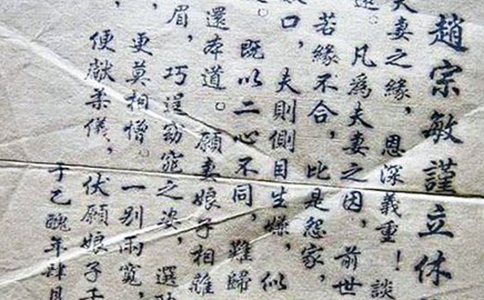 趙宗敏謹立休
夫妻之緣，恩深義重！談
遠。凡爲夫妻之因，前世
若緣不合，比是怨家，
口，夫則側目生嫌，似
既以二心不同，難歸
還本道。願妻娘子相離
眉，巧逞窈窕之姿，選
更莫相憎。一別兩寬，
便獻柔儀，伏願娘子千
于乙醜年肆月